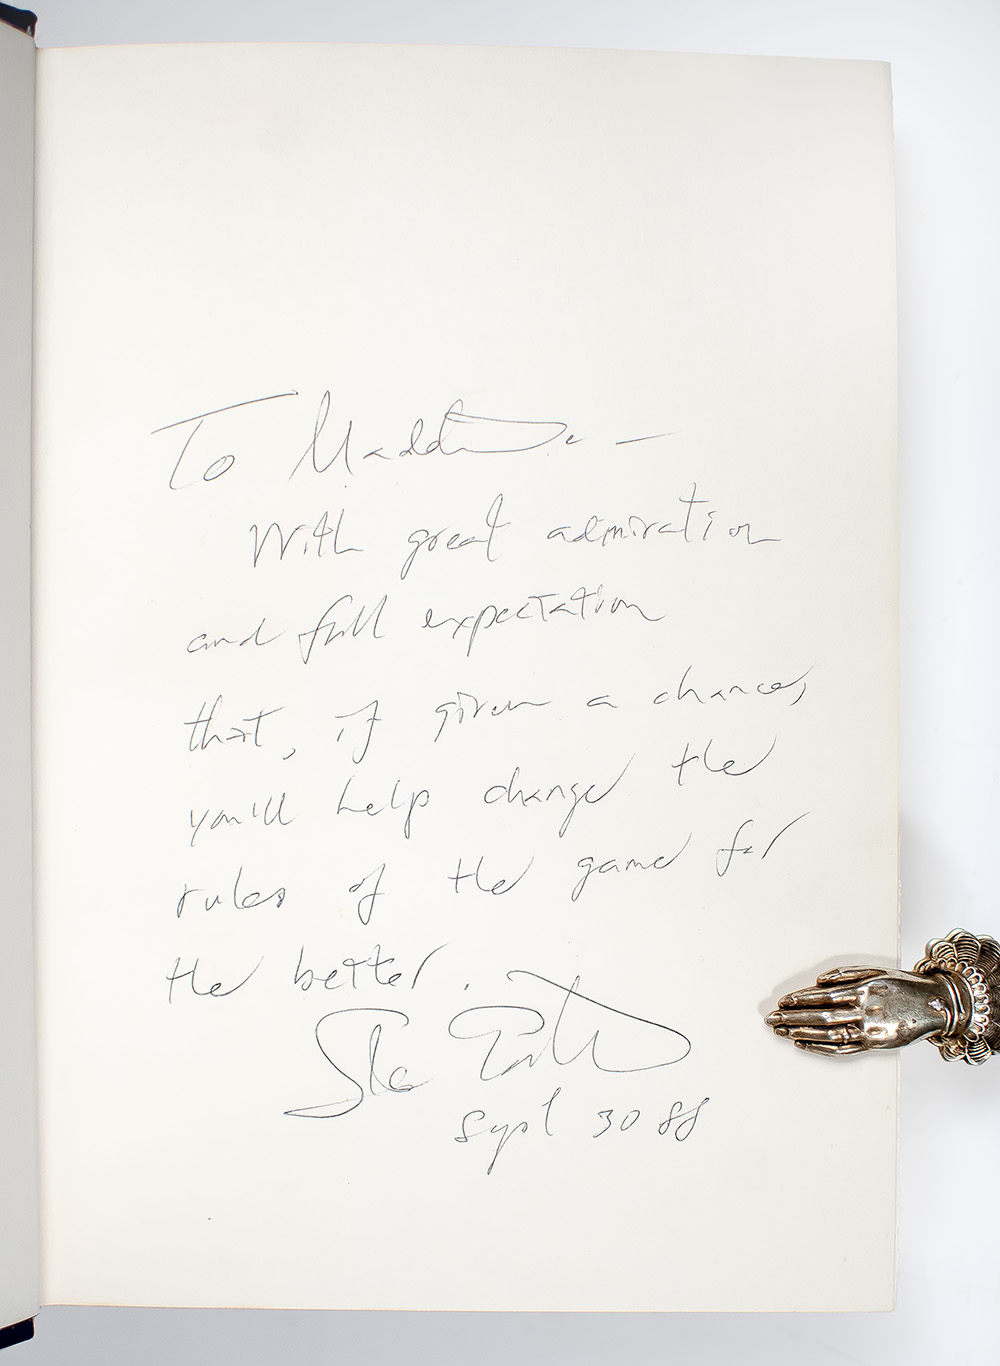 To Madeleine —
With great admiration
and full expectation
that, if given a chance,
you'll help change the
rules of the game for
the better.
Sept 30 88